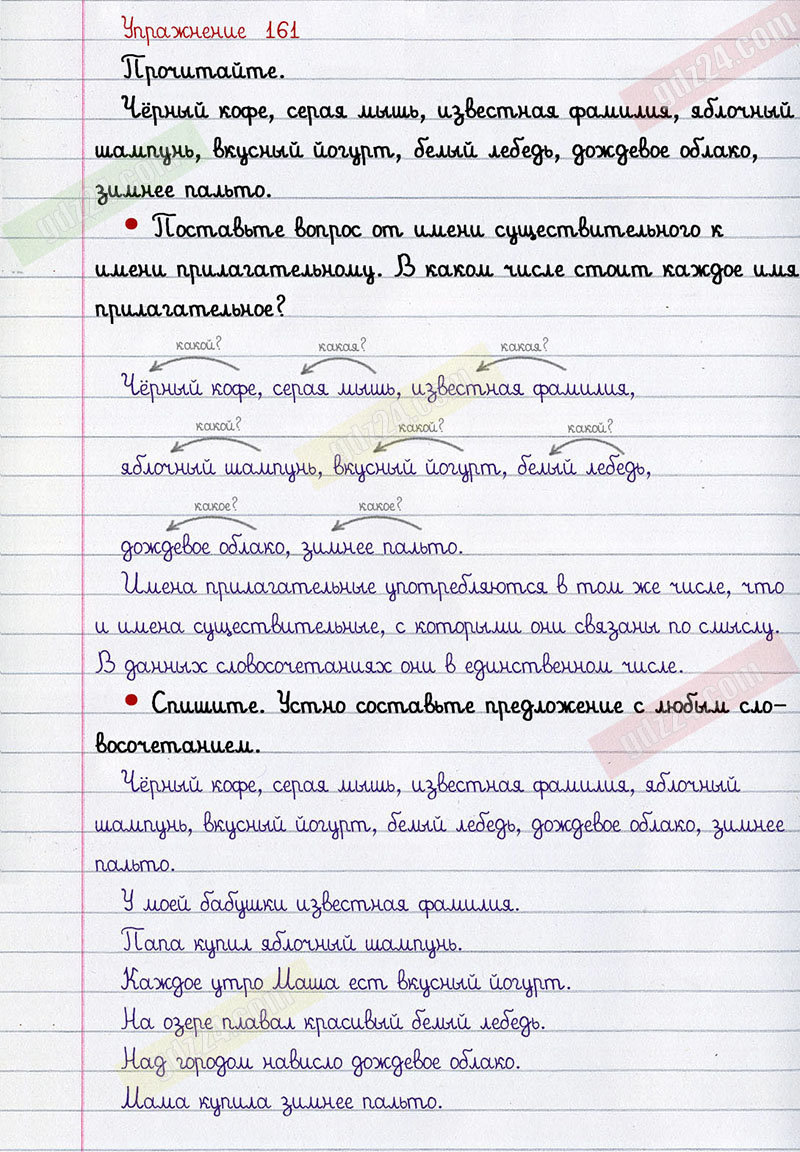 Упражнение 161
Прочитайте.
Чёрный кофе, серая мышь, известная фамилия, яблочный
шампунь, вкусный йогурт, белый лебедь, дождевое облако,
зимнее пальто.
• Поставьте вопрос от имени существительного к
имени прилагательному. В каком числе стоит каждое имя
прилагательное?
какой? какая? какая?
Чёрный кофе, серая мышь, известная фамилия,
какой? какой? какой?
яблочный шампунь, вкусный йогурт, белый лебедь,
какое? какое?
дождевое облако, зимнее пальто.
Имена прилагательные употребляются в том же числе, что
и имена существительные, с которыми они связаны по смыслу.
В данных словосочетаниях они в единственном числе.
• Спишите. Устно составьте предложение с любым сло-
восочетанием.
Чёрный кофе, серая мышь, известная фамилия, яблочный
шампунь, вкусный йогурт, белый лебедь, дождевое облако, зимнее
пальто.
У моей бабушки известная фамилия.
Папа купил яблочный шампунь.
Каждое утро Маша ест вкусный йогурт.
На озере плавал красивый белый лебедь.
Над городом нависло дождевое облако.
Мама купила зимнее пальто.
gdz24.com
gdz24.com
gdz24.com
gdz24.com
gdz24.com